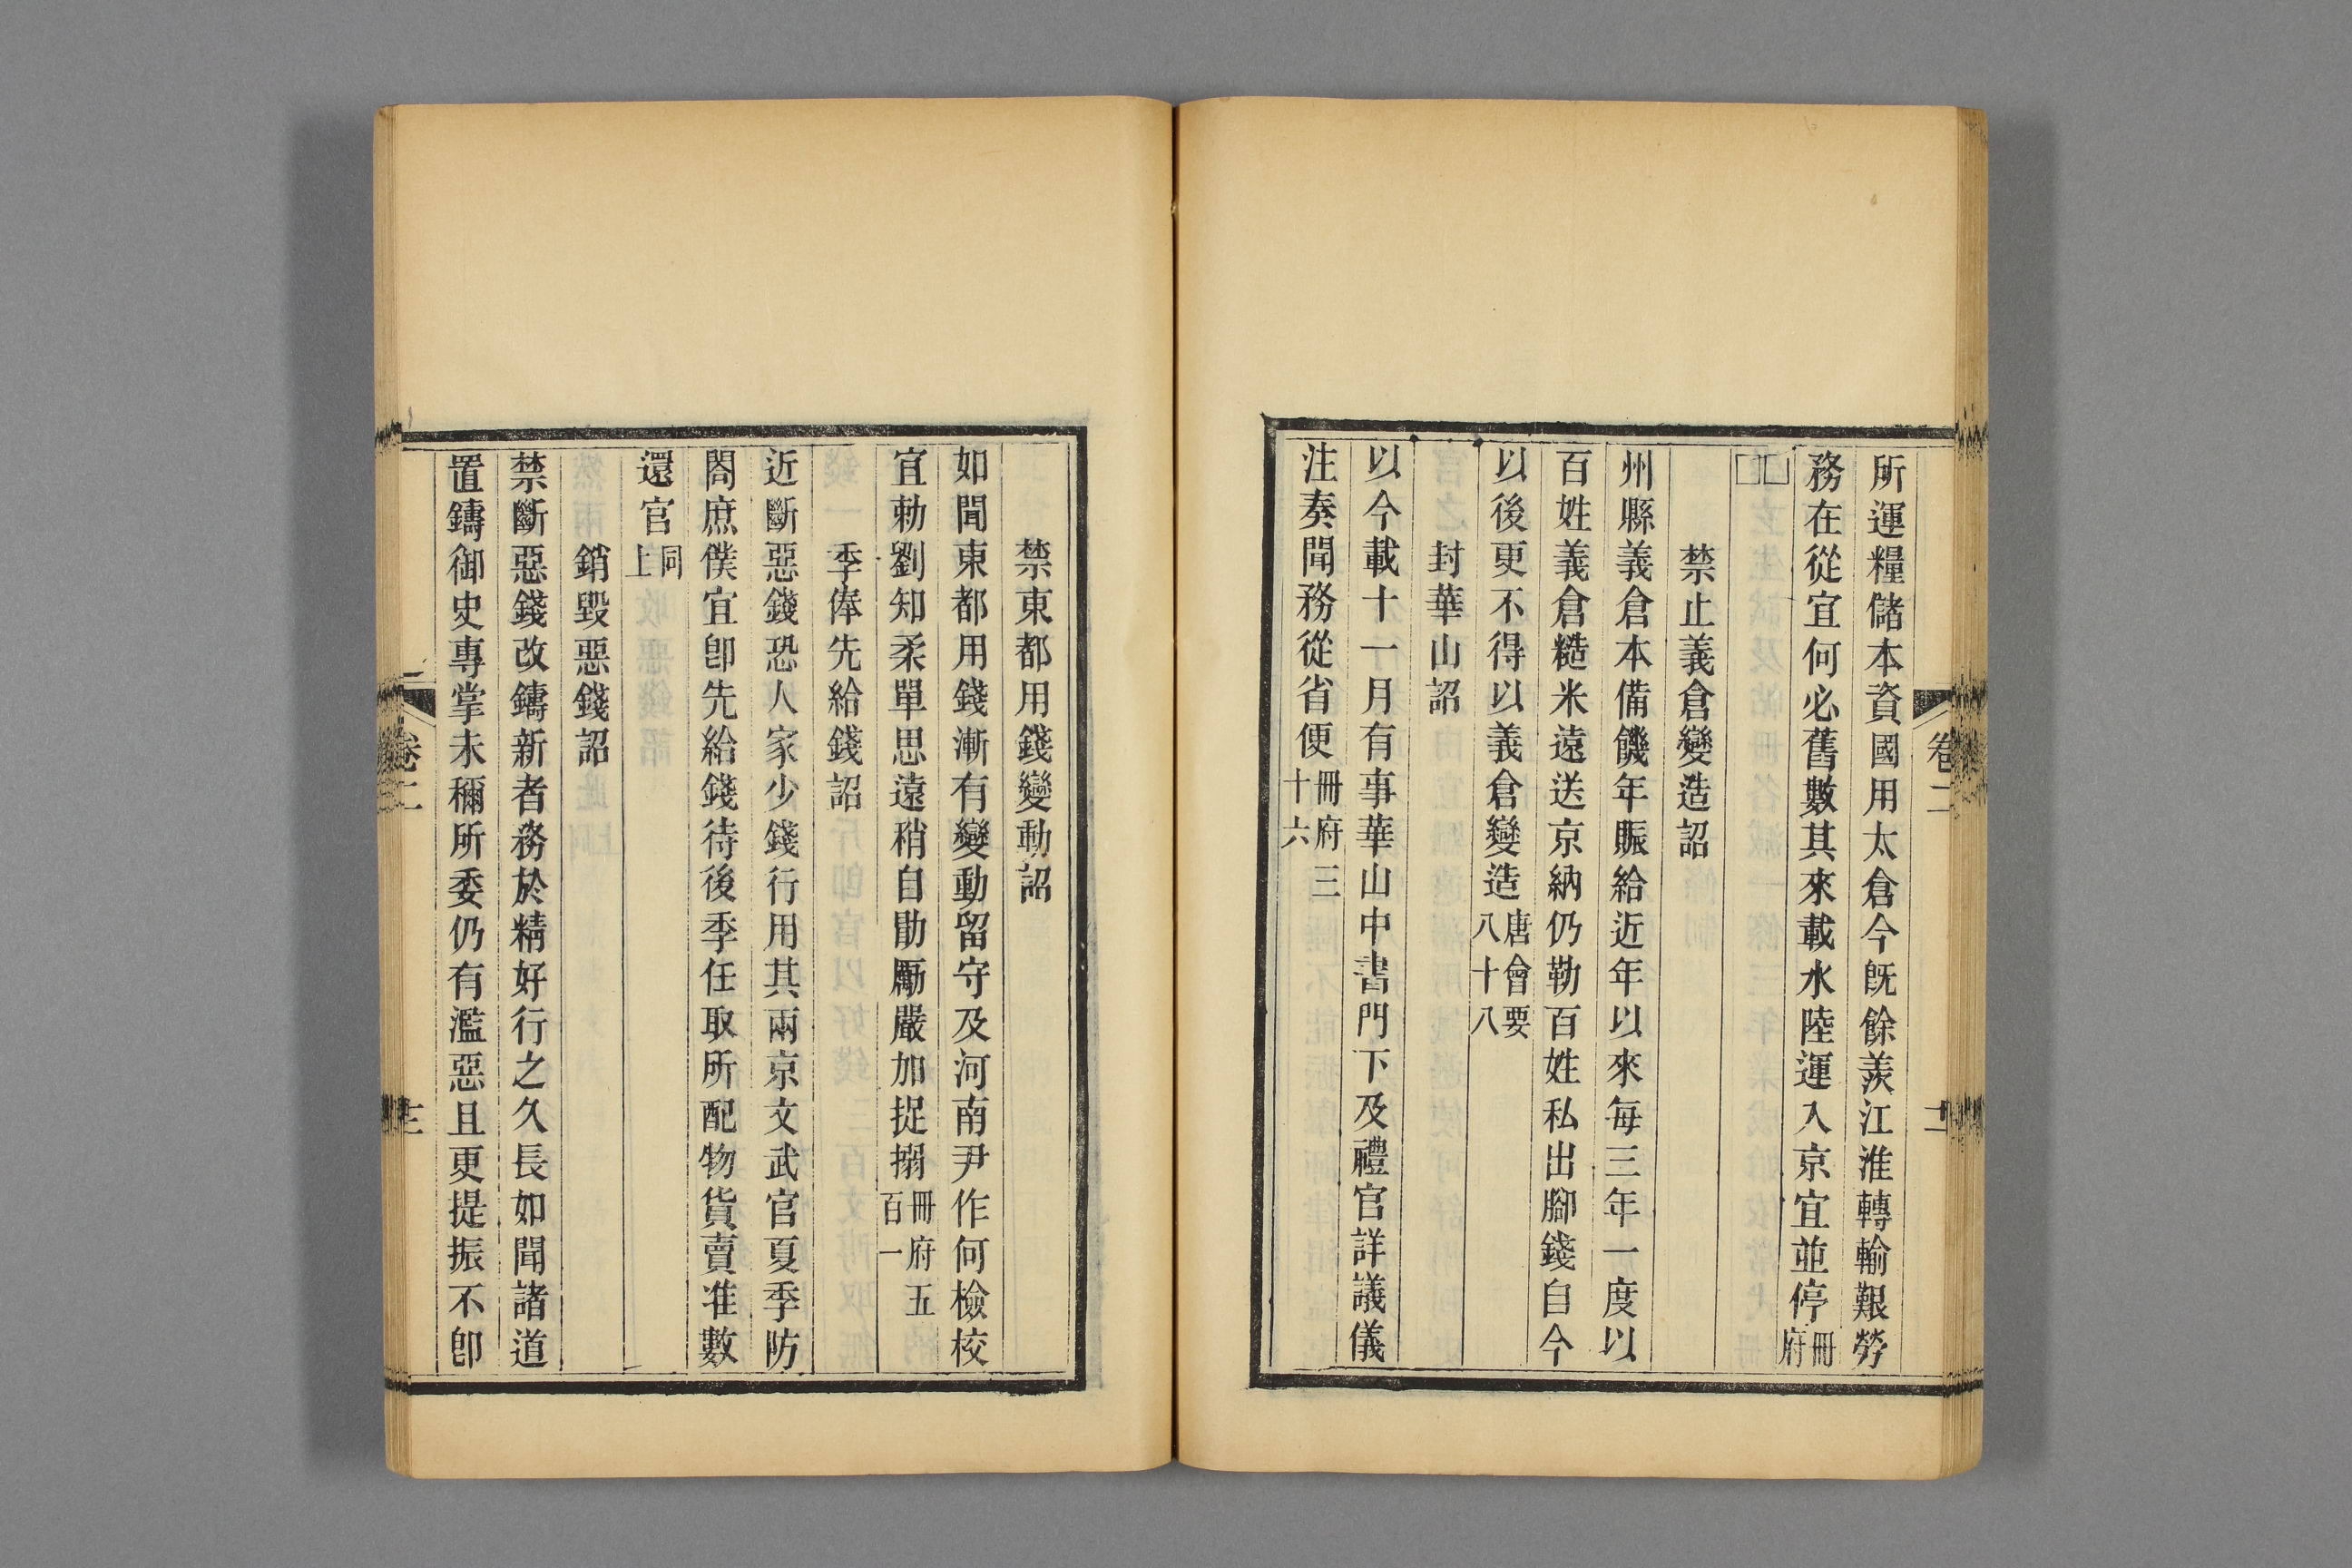 所運糧儲本資國用太倉今旣餘羨江淮轉輸艱勞
務在從宜何必舊數其來載水陸運入京宜並停冊府
□□
禁止義倉變造詔
州縣義倉本備饑年賑給近年以來每三年一度以
百姓義倉糙米遠送京納仍勒百姓私出腳錢自今
以後更不得以義倉變造唐會要八十八
封華山詔
以今載十一月有事華山中書門下及禮官詳議儀
注奏聞務從省便冊府三十六
卷二
禁東都用錢變動詔
如聞東都用錢漸有變動留守及河南尹作何檢校
宜勅劉知柔單思遠稍自勖厲嚴加捉搦冊府五百一
季俸先給錢詔
近斷惡錢恐人家少錢行用其兩京文武官夏季防
閤庶僕宜卽先給錢待後季任取所配物貨賣准數
還官同上
銷毀惡錢詔
禁斷惡錢改鑄新者務於精好行之久長如聞諸道
置鑄御史專掌未穪所委仍有濫惡且更提振不卽
卷二